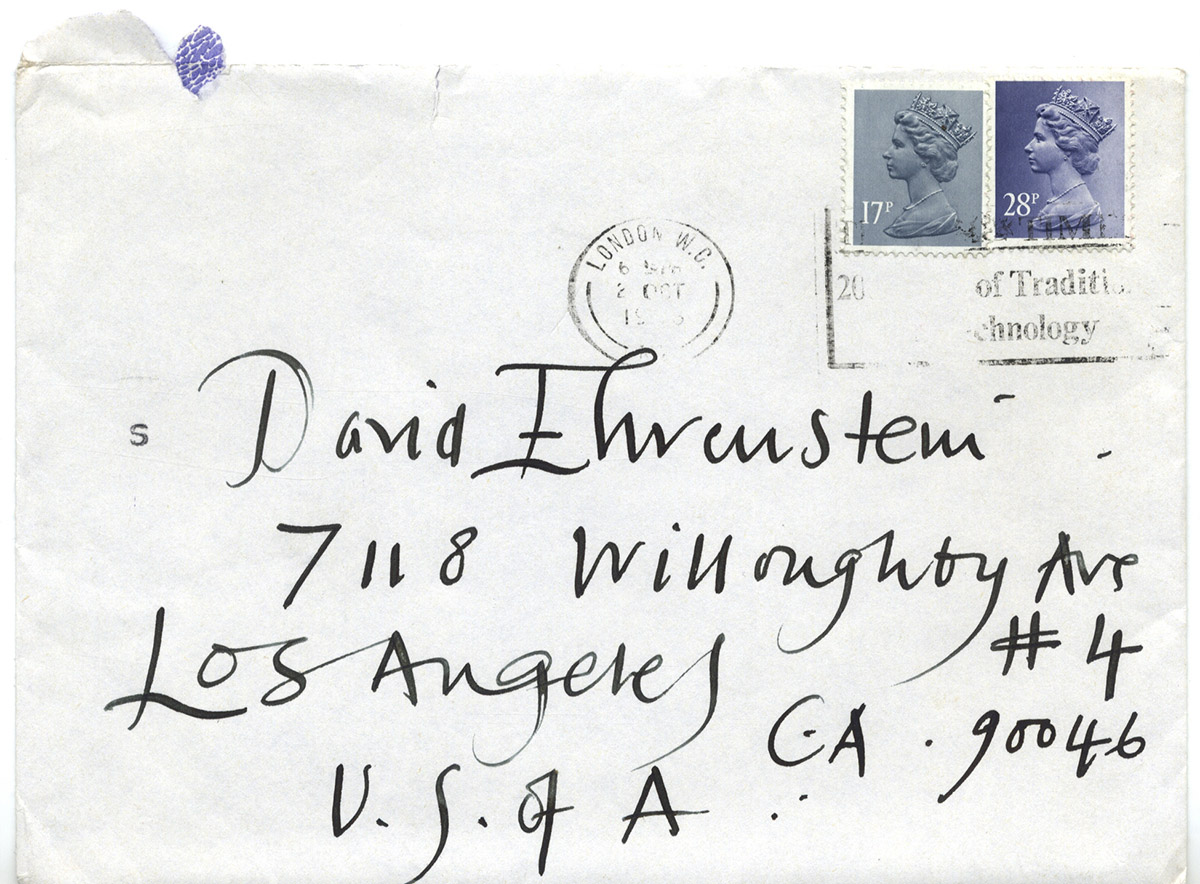 17P 28P
LONDON W.C.
2 OCT
TIME
20 of Traditi
chnology
S
David Ehrenstein
7118 Willoughby Ave
#4
Los Angeles
CA. 90046
U.S. of A.